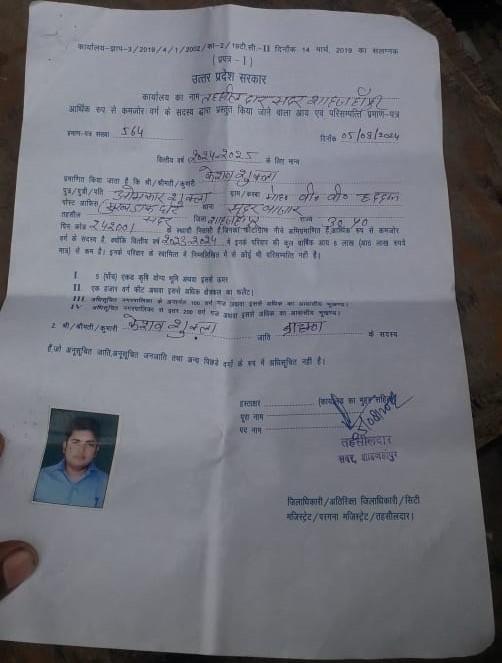 कार्यालय-ज्ञाप-3/2019/4/1/2002/का-2/19टी.सी.-II दिनांक 14 मार्च, 2019 का संलग्नक
(प्रपत्र - I)
उत्तर प्रदेश सरकार
कार्यालय का नाम तहसीलदार सदर शाहजहाँपुर
आर्थिक रुप से कमजोर वर्ग के सदस्य द्वारा प्रस्तुत किया जाने वाला आय एवं परिसम्पत्ति प्रमाण-पत्र
प्रमाण-पत्र संख्या 564 दिनाँक 05/08/2024
वित्तीय वर्ष 2024-2025 के लिए मान्य
प्रमाणित किया जाता है कि श्री/श्रीमती/कुमारी केशव शुक्ला
पुत्र/पुत्री/पति ओमकार शुक्ला ग्राम/कस्बा मोह० वी० वी० हद्दफ
पोस्ट आफिस थाना सदर बाजार
तहसील सदर जिला शाहजहाँपुर राज्य उ० प्र०
पिन कोड 242001 के स्थायी निवासी हैं,जिनका फोटोग्राफ नीचे अभिप्रमाणित है,आर्थिक रुप से कमजोर
वर्ग के सदस्य है, क्योंकि वित्तीय वर्ष 2023-2024 में इनके परिवार की कुल वार्षिक आय 8 लाख (आठ लाख रुपये
मात्र) से कम है। इनके परिवार के स्वामित्व में निम्नलिखित में से कोई भी परिसम्पत्ति नहीं है।
I 5 (पाँच) एकड़ कृषि योग्य भूमि अथवा इससे ऊपर
II एक हजार वर्ग फीट अथवा इससे अधिक क्षेत्रफल का फ्लैट।
III अधिसूचित नगरपालिका के अन्तर्गत 100 वर्ग गज अथवा इससे अधिक का आवासीय भूखण्ड।
IV अधिसूचित नगरपालिका से इतर 200 वर्ग गज अथवा इससे अधिक का आवासीय भूखण्ड।
2. श्री/श्रीमती/कुमारी केशव शुक्ला जाति ब्राह्मण के सदस्य
हैं,जो अनुसूचित जाति,अनुसूचित जनजाति तथा अन्य पिछड़े वर्गों के रुप में अधिसूचित नहीं है।
हस्ताक्षर (कार्यालय का मुहर सहित)
पूरा नाम
पद नाम
तहसीलदार
सदर, शाहजहाँपुर
जिलाधिकारी/अतिरिक्त जिलाधिकारी/सिटी
मजिस्ट्रेट/परगना मजिस्ट्रेट/तहसीलदार।